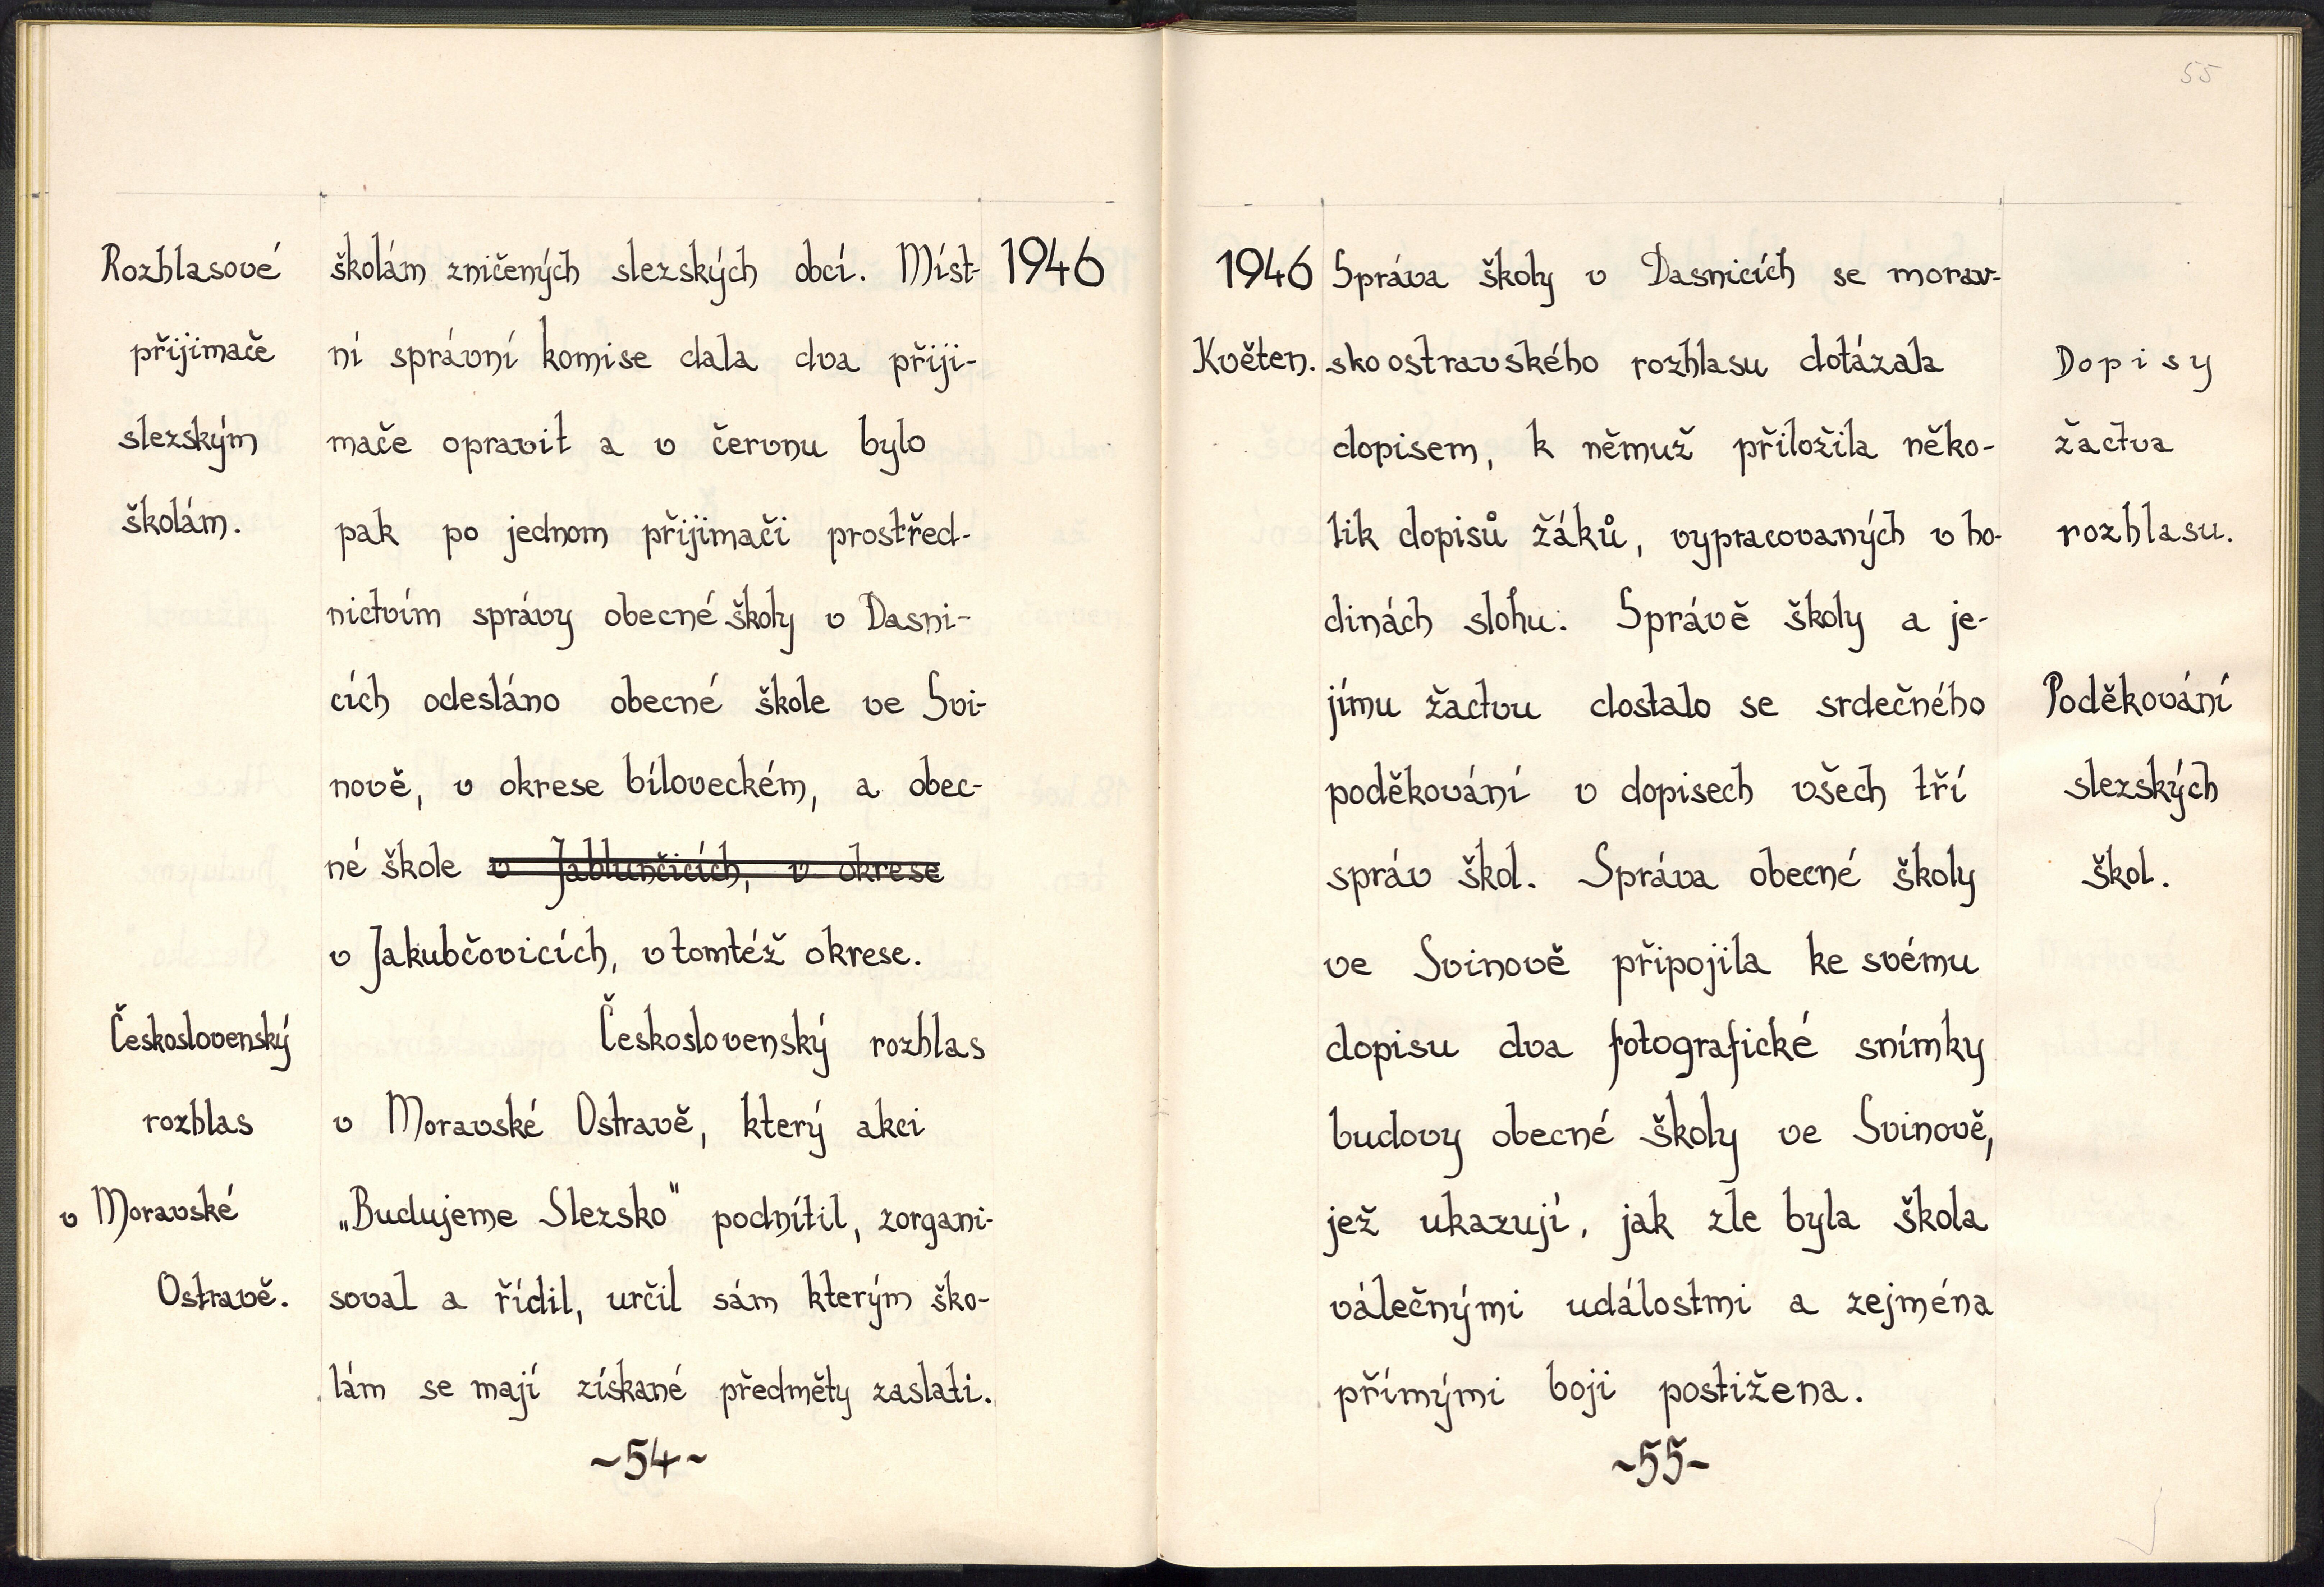 Rozhlasové
přijimače
slezským
školám.
Československý
rozhlas
v Moravské
Ostravě.
1946
školám zničených slezských obcí. Míst-
ní správní komise dala dva přiji-
mače opravit a v červnu bylo
pak po jednom přijimači prostřed-
nictvím správy obecné školy v Dasni-
cích odesláno obecné škole ve Svi-
nově, v okrese bíloveckém, a obec-
né škole v Jablunčicích, v okrese
v Jakubčovicích, v tomtéž okrese.
Československý rozhlas
v Moravské Ostravě, který akci
„Budujeme Slezsko" podnítil, zorgani-
soval a řídil, určil sám kterým ško-
lám se mají získané předměty zaslati.
~54~
55
1946
Květen.
Správa školy v Dasnicích se morav-
skoostravského rozhlasu dotázala
dopisem, k němuž přiložila něko-
lik dopisů žáků, vypracovaných v ho-
dinách slohu. Správě školy a je-
jímu žactvu dostalo se srdečného
poděkování v dopisech všech tří
správ škol. Správa obecné školy
ve Svinově připojila ke svému
dopisu dva fotografické snímky
budovy obecné školy ve Svinově,
jež ukazují, jak zle byla škola
válečnými událostmi a zejména
přímými boji postižena.
Dopisy
žactva
rozhlasu.
Poděkování
slezských
škol.
~55~